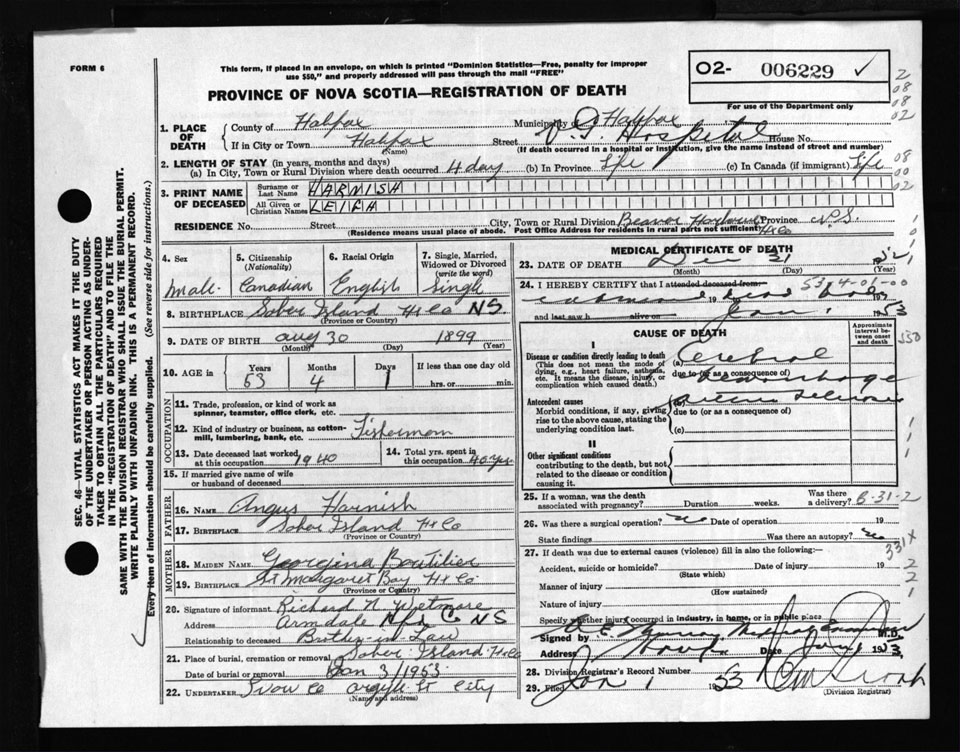 FORM 6
This form, if placed in an envelope, on which is printed "Dominion Statistics—Free, penalty for improper
use $50," and properly addressed will pass through the mail "FREE"
O2- 006229 ✓
For use of the Department only
PROVINCE OF NOVA SCOTIA—REGISTRATION OF DEATH
2
08
08
02
1. PLACE OF DEATH
County of Halifax Municipality of Halifax
If in City or Town Halifax Street V.G. Hospital House No.
(Name) (If death occurred in a hospital or institution, give the name instead of street and number)
2. LENGTH OF STAY (in years, months and days)
(a) In City, Town or Rural Division where death occurred 4 day (b) In Province Life (c) In Canada (if immigrant) Life
08
00
02
3. PRINT NAME OF DECEASED
Surname or Last Name HARNISH
All Given or Christian Names LEIGH
RESIDENCE No. Street City, Town or Rural Division Beaver Harbour Province N.S.
(Residence means usual place of abode. Post Office Address for residents in rural parts not sufficient) Hx Co
4. Sex
Male
5. Citizenship
(Nationality)
Canadian
6. Racial Origin
English
7. Single, Married, Widowed or Divorced
(write the word)
Single
8. BIRTHPLACE Sober Island Hx Co NS.
(Province or Country)
9. DATE OF BIRTH Aug 30 1899
(Month) (Day) (Year)
10. AGE in
Years Months Days If less than one day old
53 4 1 hrs. or min.
OCCUPATION
11. Trade, profession, or kind of work as spinner, teamster, office clerk, etc.
12. Kind of industry or business, as cotton-mill, lumbering, bank, etc. Fisherman
13. Date deceased last worked at this occupation 1940
14. Total yrs. spent in this occupation 40 yrs
15. If married give name of wife or husband of deceased
FATHER
16. Name Angus Harnish
17. Birthplace Sober Island Hx Co
(Province or Country)
MOTHER
18. MAIDEN NAME Georgina Boutilier
19. Birthplace St Margaret Bay Hx Co
(Province or Country)
20. Signature of informant Richard N Wetmore
Address Armdale Hfx Co NS
Relationship to deceased Brother-in-Law
21. Place of burial, cremation or removal Sober Island Hx Co
Date of burial or removal Jan 3/1953
22. UNDERTAKER Snow Co Argyle St City
(Name and address)
MEDICAL CERTIFICATE OF DEATH
23. DATE OF DEATH Dec 31 1952
(Month) (Day) (Year)
24. I HEREBY CERTIFY that I attended deceased from:
19
and last saw h alive on Jan. 1 1953
CAUSE OF DEATH
Approximate interval between onset and death
I
Disease or condition directly leading to death
(This does not mean the mode of dying, e.g., heart failure, asthenia, etc. It means the disease, injury, or complication which caused death.)
(a) Cerebral
due to (or as a consequence of)
hemorrhage
Antecedent causes
Morbid conditions, if any, giving rise to the above cause, stating the underlying condition last.
due to (or as a consequence of)
(c)
II
Other significant conditions
contributing to the death, but not related to the disease or condition causing it.
25. If a woman, was the death associated with pregnancy? Duration weeks. Was there a delivery? B-31-2
26. Was there a surgical operation? no Date of operation 19
State findings Was there an autopsy? no
331X
27. If death was due to external causes (violence) fill in also the following:—
Accident, suicide or homicide? Date of injury 19
(State which)
Manner of injury
(How sustained)
Nature of injury
Specify whether injury occurred in industry, in home, or in public place
Signed by M.D.
Address Date Jan 1 1953
28. Division Registrar's Record Number
29. Filed Jan 1 1953
(Division Registrar)
SEC. 46—VITAL STATISTICS ACT MAKES IT THE DUTY
OF THE UNDERTAKER OR PERSON ACTING AS UNDER-
TAKER TO OBTAIN ALL THE PARTICULARS REQUIRED
IN THE "REGISTRATION OF DEATH" AND TO FILE THE
SAME WITH THE DIVISION REGISTRAR WHO SHALL ISSUE THE BURIAL PERMIT.
WRITE PLAINLY WITH UNFADING INK. THIS IS A PERMANENT RECORD.
Every item of information should be carefully supplied. (See reverse side for instructions.)